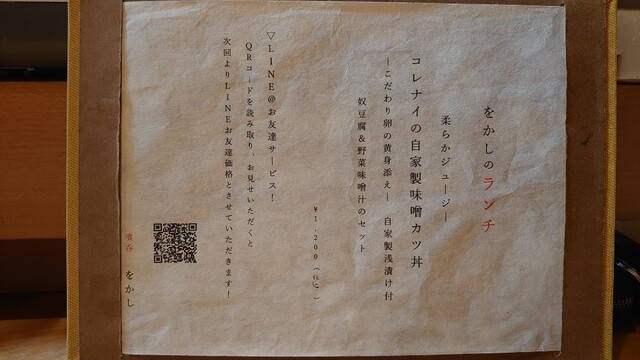 をかしのランチ
柔らかジューシー
コレナイの自家製味噌カツ丼
―こだわり卵の黄身添え― 自家製浅漬け付
奴豆腐&野菜味噌汁のセット
¥1,200(税込)
▽LINE@お友達サービス!
QRコードを読み取り、お見せいただくと
次回よりLINEお友達価格とさせていただきます!
をかし